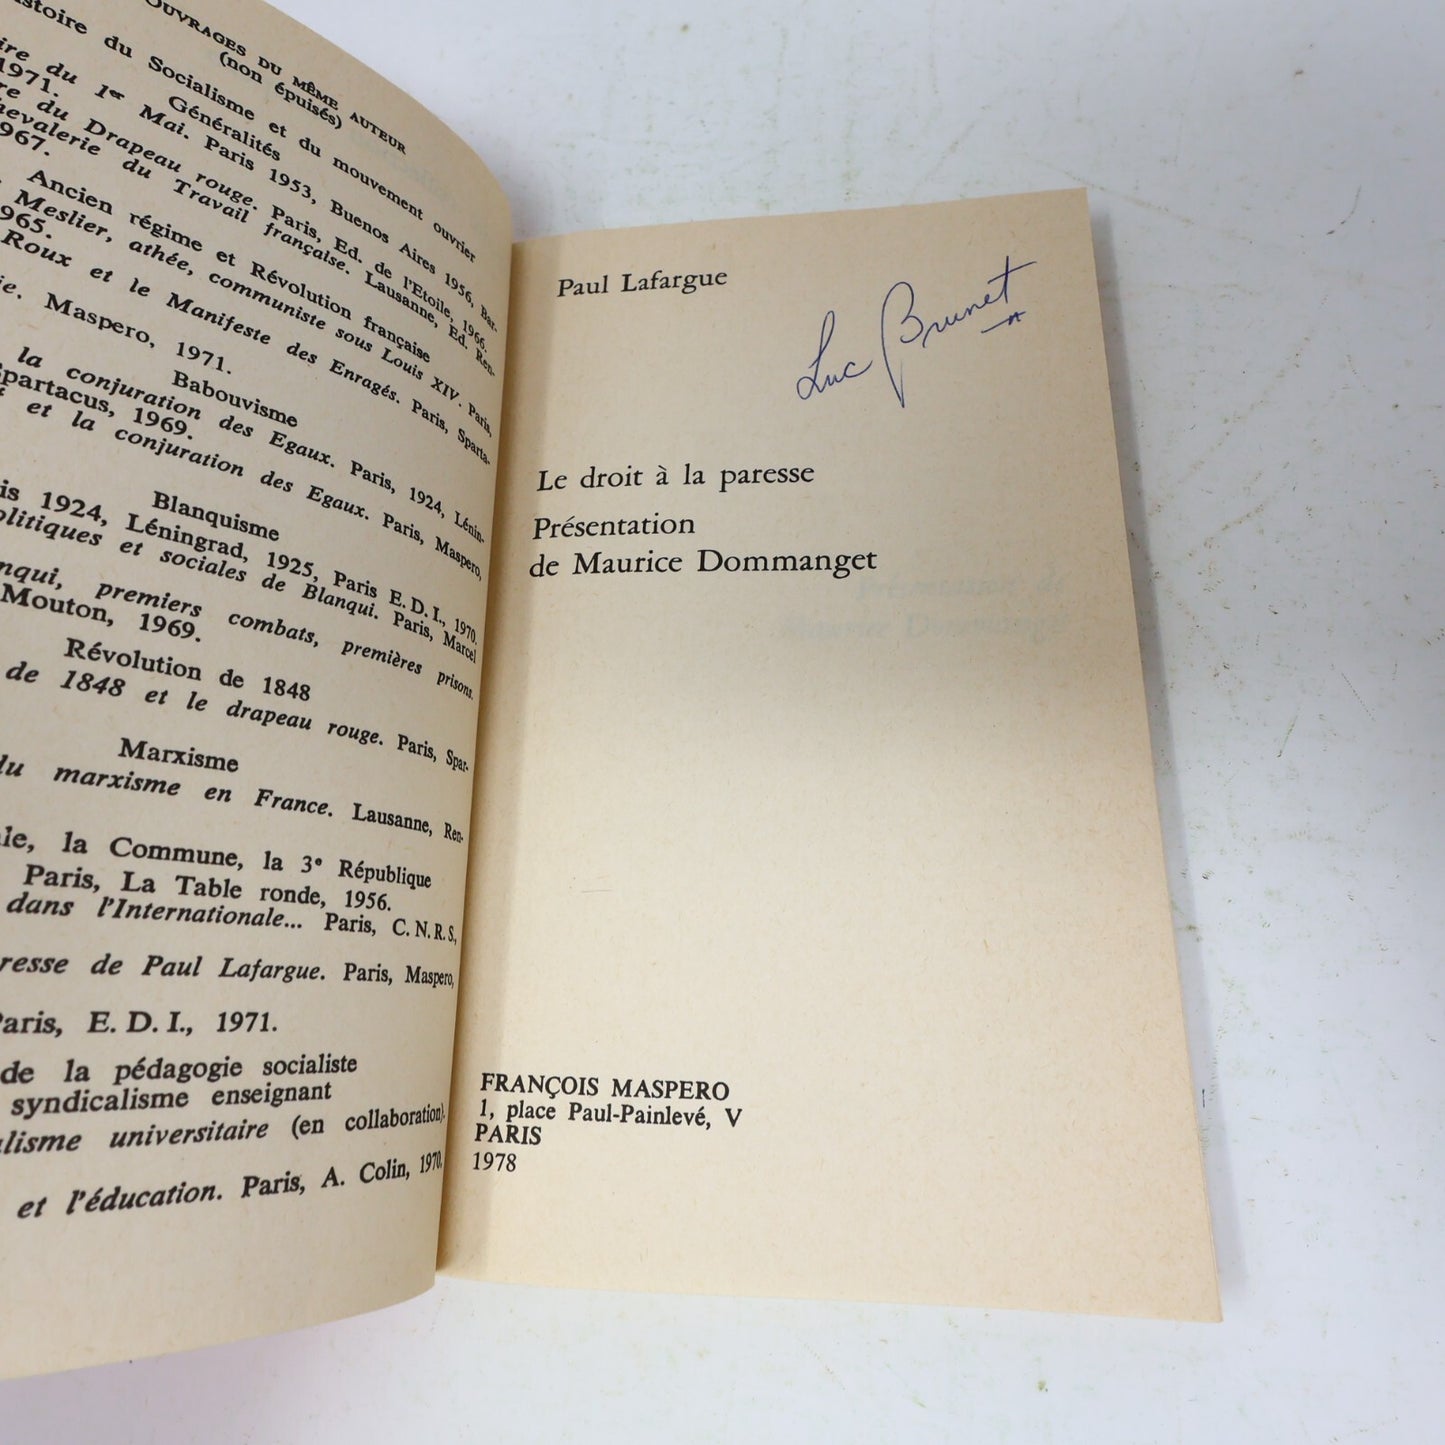 OUVRAGES DU MÊME AUTEUR
(non épuisés)
stoire du Socialisme et du mouvement ouvrier
Généralités
ire du 1er Mai. Paris 1953, Buenos Aires 1956, Bar-
1971.
re du Drapeau rouge. Paris, Ed. de l'Etoile, 1966.
hevalerie du Travail française. Lausanne, Ed. Ren-
967.
Ancien régime et Révolution française
Meslier, athée, communiste sous Louis XIV. Paris,
965.
Roux et le Manifeste des Enragés. Paris, Sparta-
ie. Maspero, 1971.
Babouvisme
la conjuration des Egaux. Paris, 1924, Lénin-
Spartacus, 1969.
et la conjuration des Egaux. Paris, Maspero,
Blanquisme
is 1924, Léningrad, 1925, Paris E. D. I., 1970.
olitiques et sociales de Blanqui. Paris, Marcel
nqui, premiers combats, premières prisons.
Mouton, 1969.
Révolution de 1848
de 1848 et le drapeau rouge. Paris, Spar-
Marxisme
du marxisme en France. Lausanne, Ren-
ale, la Commune, la 3e République
Paris, La Table ronde, 1956.
dans l'Internationale... Paris, C. N. R. S.,
resse de Paul Lafargue. Paris, Maspero,
Paris, E. D. I., 1971.
de la pédagogie socialiste
syndicalisme enseignant
alisme universitaire (en collaboration).
et l'éducation. Paris, A. Colin, 1970.
Paul Lafargue
Luc Brunet
Le droit à la paresse
Présentation
de Maurice Dommanget
FRANÇOIS MASPERO
1, place Paul-Painlevé, V
PARIS
1978